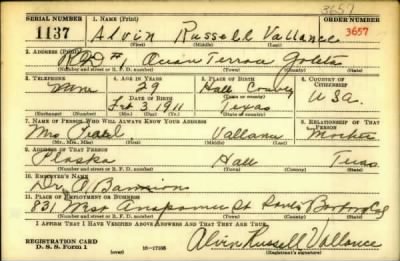 3657
SERIAL NUMBER 1. NAME (Print) ORDER NUMBER
1137 Alvin Russell Vallance 3657
(First) (Middle) (Last)
2. ADDRESS (Print)
RFD #1, Ocean Terrace Goleta
(Number and street or R. F. D. number) (Town) (County) (State)
3. TELEPHONE 4. AGE IN YEARS 5. PLACE OF BIRTH 6. COUNTRY OF CITIZENSHIP
None 29 Hall County
DATE OF BIRTH
Feb 3 1911 Texas U S a.
(Mo.) (Day) (Yr.) (State or country)
7. NAME OF PERSON WHO WILL ALWAYS KNOW YOUR ADDRESS 8. RELATIONSHIP OF THAT PERSON
Mrs Pearl Vallance Mother
(Mr., Mrs., Miss) (First) (Middle) (Last)
9. ADDRESS OF THAT PERSON
Plaska Hall Texas
(Number and street or R. F. D. number) (Town) (County) (State)
10. EMPLOYER'S NAME
Dr
11. PLACE OF EMPLOYMENT OR BUSINESS
831 West Anapamu St Santa Barbara Cal
(Number and street or R. F. D. number) (Town) (County) (State)
I AFFIRM THAT I HAVE VERIFIED ABOVE ANSWERS AND THAT THEY ARE TRUE.
REGISTRATION CARD
D. S. S. Form 1 (over) 16—17105 Alvin Russell Vallance
(Registrant's signature)